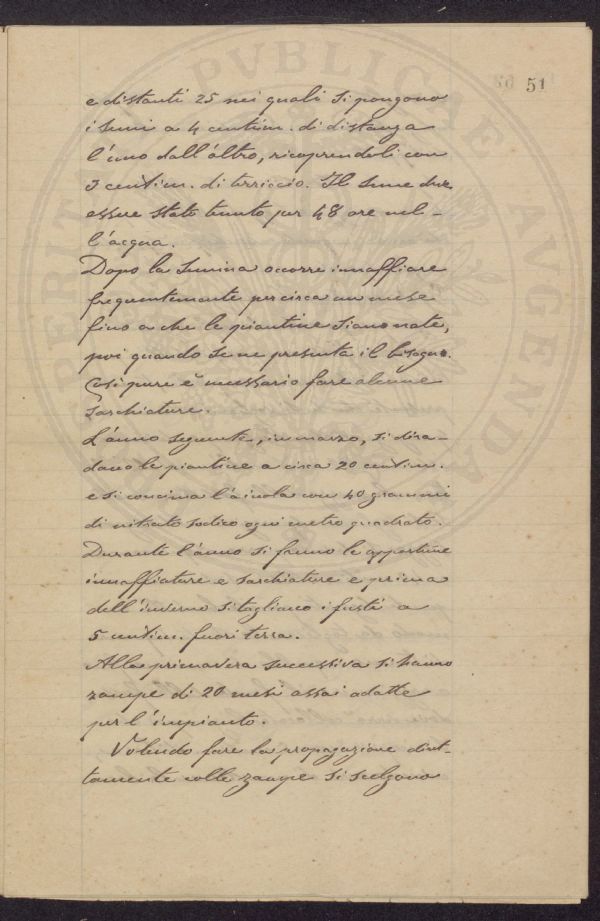 51
e distanti 25 nei quali si pongono
i semi a 4 centim. di distanza
l'uno dall'altro, ricoprendoli con
3 centim. di terriccio. Il seme deve
essere stato tenuto per 48 ore nel-
l'acqua.
Dopo la semina occorre innaffiare
frequentemente per circa un mese
fino a che le piantine siano nate,
poi quando se ne presenta il bisogno.
Così pure è necessario fare alcune
sarchiature.
L'anno seguente, in marzo, si dira-
dano le piantine a circa 20 centim.
e si concima l'aiuola con 40 grammi
di nitrato sodico ogni metro quadrato.
Durante l'anno si fanno le opportune
innaffiature e sarchiature e prima
dell'inverno si tagliano i fusti a
5 centim. fuori terra.
Alla primavera successiva si hanno
zampe di 20 mesi assai adatte
per l'impianto.
Volendo fare la propagazione diret-
tamente colle zampe si scelgono
PVBLICAE
AVGENDAE